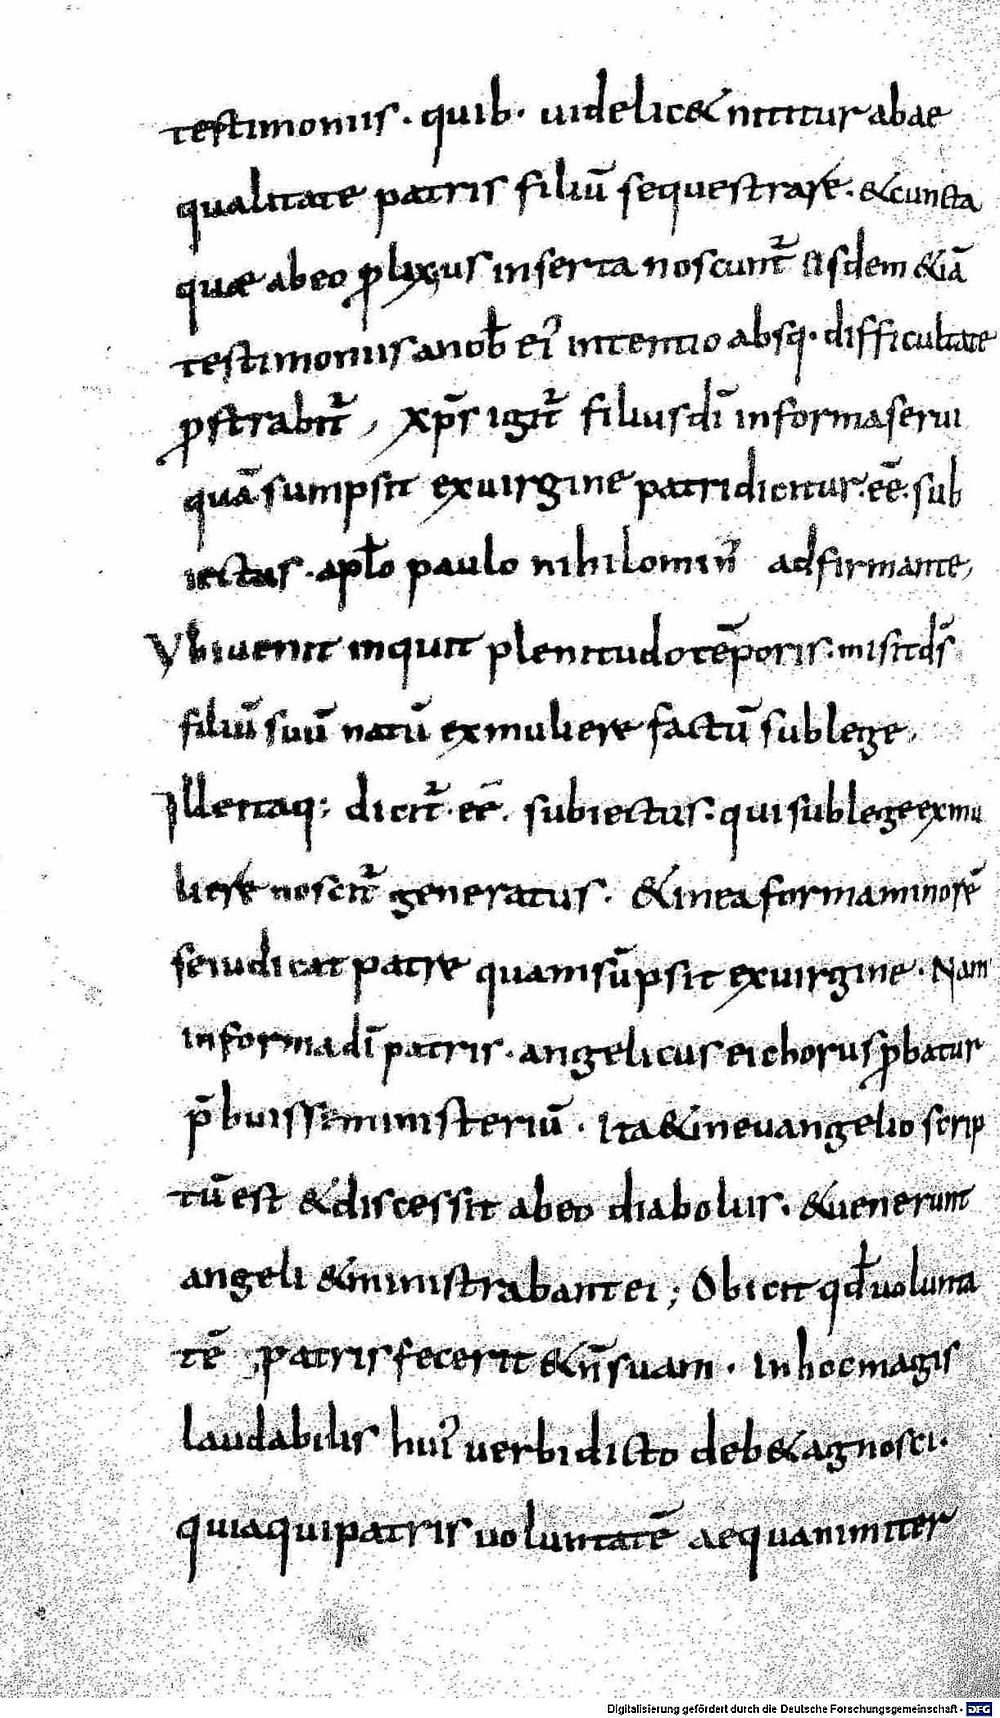 testimoniis · quib· uidelic& nititur ab ae
qualitate patris filiū sequestrare · & cuncta
quae ab eo ꝓlixius inserta noscunt᷑ eisdem &iā
testimoniis a nob̄ ei᾽ intentio absq· difficultate
ꝓstrabit᷑, xp̄s igit᷑ filius dī in forma serui
quā sumpsit ex uirgine patri dicitur · eē · sub
iectus · apl̄o paulo nihilomin᾽ adfirmante,
Vbi uenit inquit plenitudo tēporis · misit ds̄
filiū suū natū ex muliere factū sub lege,
Ille itaq; dicit᷑ · eē · subiectus · qui sub lege ex mu
liere noscit᷑ generatus · & in ea forma minorē
se iudicat patre quam sūpsit ex uirgine · Nam
in forma dī patris · angelicus ei chorus ꝓbatur
p̄buisse ministeriū · Ita & in euangelio scrip
tū est & discessit ab eo diabolus · & uenerunt
angeli & ministrabant ei; Obicit qd̄ uolunta
tē patris fecerit & n̄ suam · In hoc magis
laudabilis hui᾽ uerbi dicto deb& agnosci ·
quia qui patris uoluntatē aequanimiter
Digitalisierung gefördert durch die Deutsche Forschungsgemeinschaft - DFG